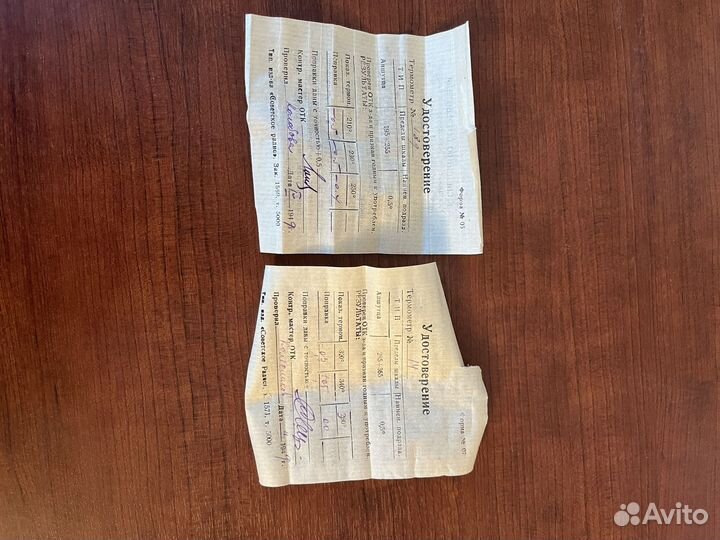 Форма № 05
Удостоверение
Термометр №
ТИП | Пределы шкалы | Наимен. подразд.
Аншутца | 205—255 | 0,5°
Проверен ОТК з-да и признан годным к употреблен.
РЕЗУЛЬТАТЫ:
Показ. термом. | 210° | 230° | 250°
Поправка
Поправки даны с точностью 0,5
Контр. мастер ОТК
Проверил Дата 1949г.
Тип. изд-ва «Советское радио», Зак. 1569, т. 5000
Форма № 07
Удостоверение
Термометр № 14
ТИП | Пределы шкалы | Наимен. подразд.
Аншутца | 0,5°
Проверен ОТК з-да и признан годным к употреблен.
РЕЗУЛЬТАТЫ:
Показ. термом. | 330° | 340° | 350°
Поправка
Поправки даны с точностью
Контр. мастер ОТК
Проверил Дата 1949г.
Тип. изд. «Советское Радио», з. 1571, т. 5000
Avito